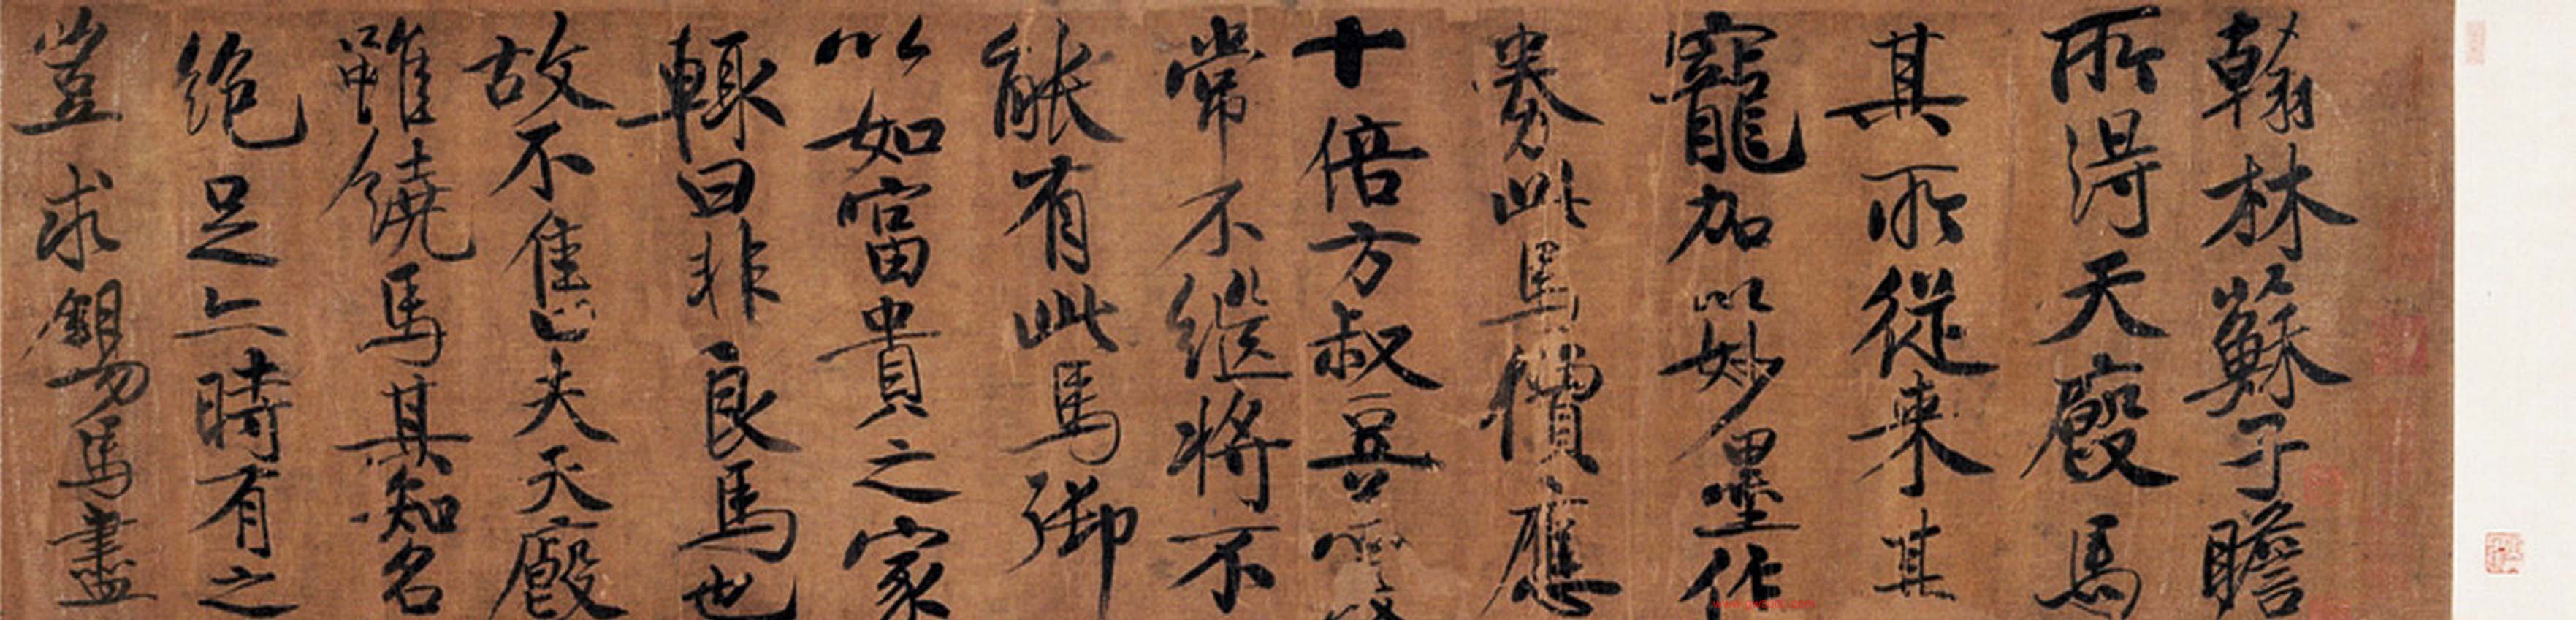 翰林蘇子瞻
所得天廄馬
其所從来甚
寵加以妙墨作
券此馬價應
十倍方叔豆
常不継將不
能有此馬御
以如富貴之家
輒曰非良馬也
故不售夫天廄
雖饒馬其知名
絶足亦時有之
豈求錫馬盡